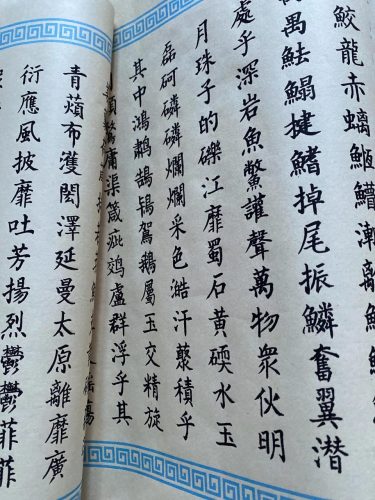 鮫龍赤螭漸離
禺魼鰨揵鰭掉尾振鱗奮翼潛
處乎深岩魚鱉讙聲萬物眾伙明
月珠子的礫江靡蜀石黃碝水玉
磊砢磷磷爛爛采色澔汗藂積乎
其中鴻鷫鵠鴇鴐鵝屬玉交精旋
煩鶩庸渠箴疵鵁盧群浮乎其
青薠布濩閎澤延曼太原離靡廣
衍應風披靡吐芳揚烈鬱鬱菲菲